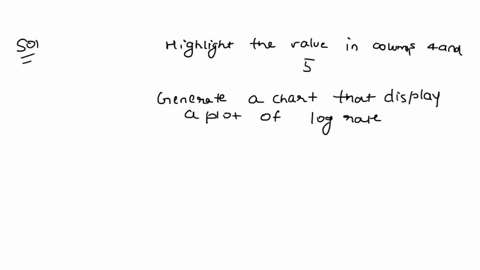 Sol Highlight the value in columns 4 and
5
Generate a chart that display
a plot of log rate